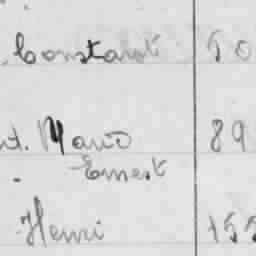 Constant 50
Mario 89
Ernest
Henri 155